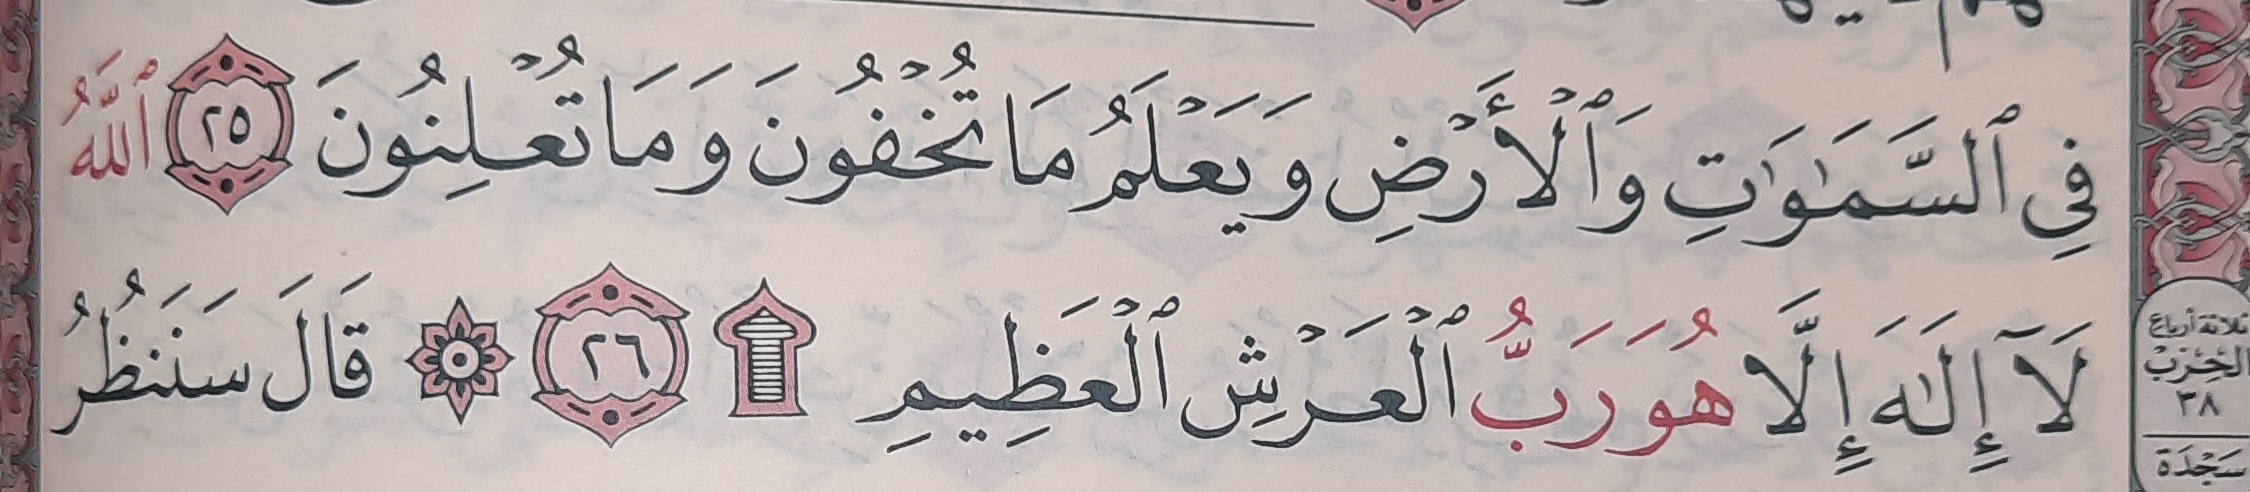 فِي ٱلسَّمَٰوَٰتِ وَٱلْأَرْضِ وَيَعْلَمُ مَا تُخْفُونَ وَمَا تُعْلِنُونَ ٢٥ ٱللَّهُ
لَآ إِلَٰهَ إِلَّا هُوَ رَبُّ ٱلْعَرْشِ ٱلْعَظِيمِ ٢٦ قَالَ سَنَنظُرُ
ثلاثة أرباع
الحِزْبْ
٣٨
سَجْدَة